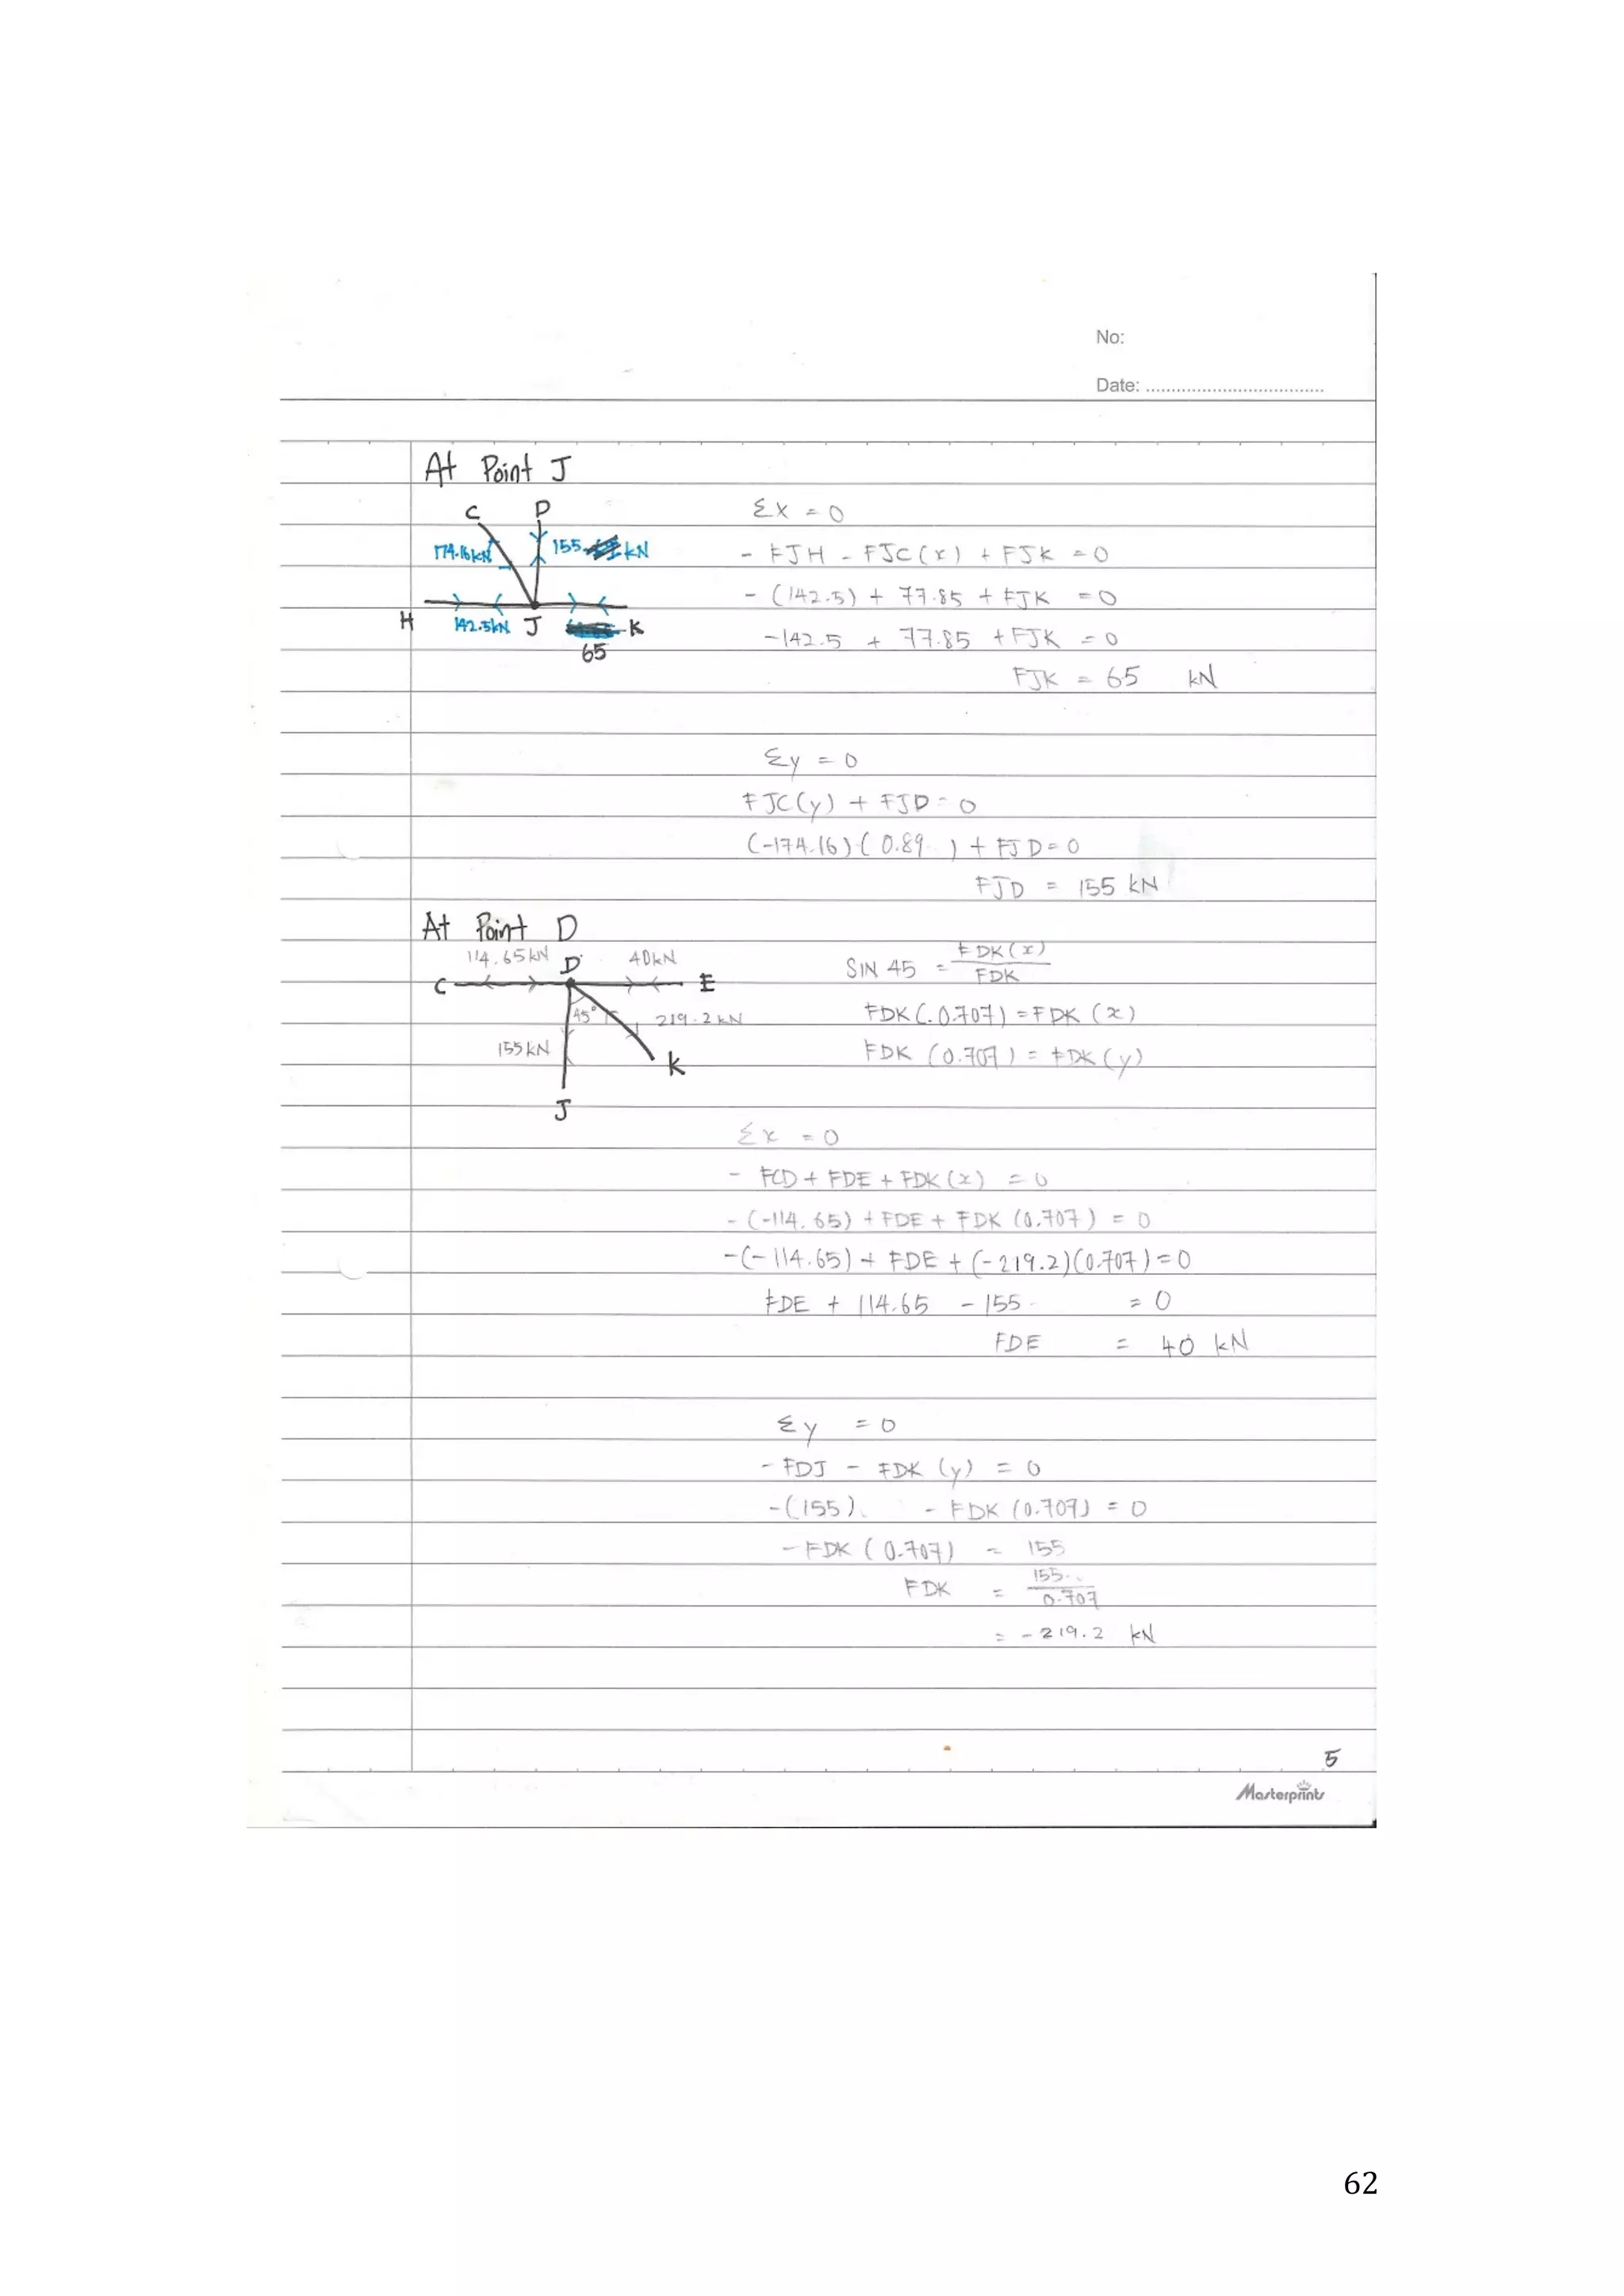 No:
Date: ..................................
At Point J
C D
174.16kN 155 kN
H 142.5kN J K
65
Σx = 0
- FJH - FJC (x) + FJK = 0
- (142.5) + 77.85 + FJK = 0
-142.5 + 77.85 + FJK = 0
FJK = 65 kN
Σy = 0
FJC(y) + FJD = 0
(-174.16) (0.89 ) + FJD = 0
FJD = 155 kN
At Point D
114.65kN D 40kN
C E
45° 219.2 kN
155kN K
J
SIN 45 = FDK(x) / FDK
FDK (0.707) = FDK (x)
FDK (0.707) = FDK (y)
Σx = 0
- FCD + FDE + FDK (x) = 0
- (-114.65) + FDE + FDK (0.707) = 0
-(-114.65) + FDE + (-219.2)(0.707) = 0
FDE + 114.65 - 155 = 0
FDE = 40 kN
Σy = 0
- FDJ - FDK (y) = 0
-(155) - FDK (0.707) = 0
- FDK (0.707) = 155
FDK = 155 / 0.707
= - 219.2 kN
5
Masterprints
62